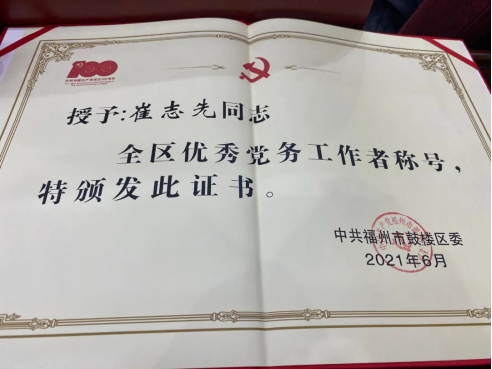 100
授予:崔志先同志
全区优秀党务工作者称号,
特颁发此证书。
中共福州市鼓楼区委
2021年6月